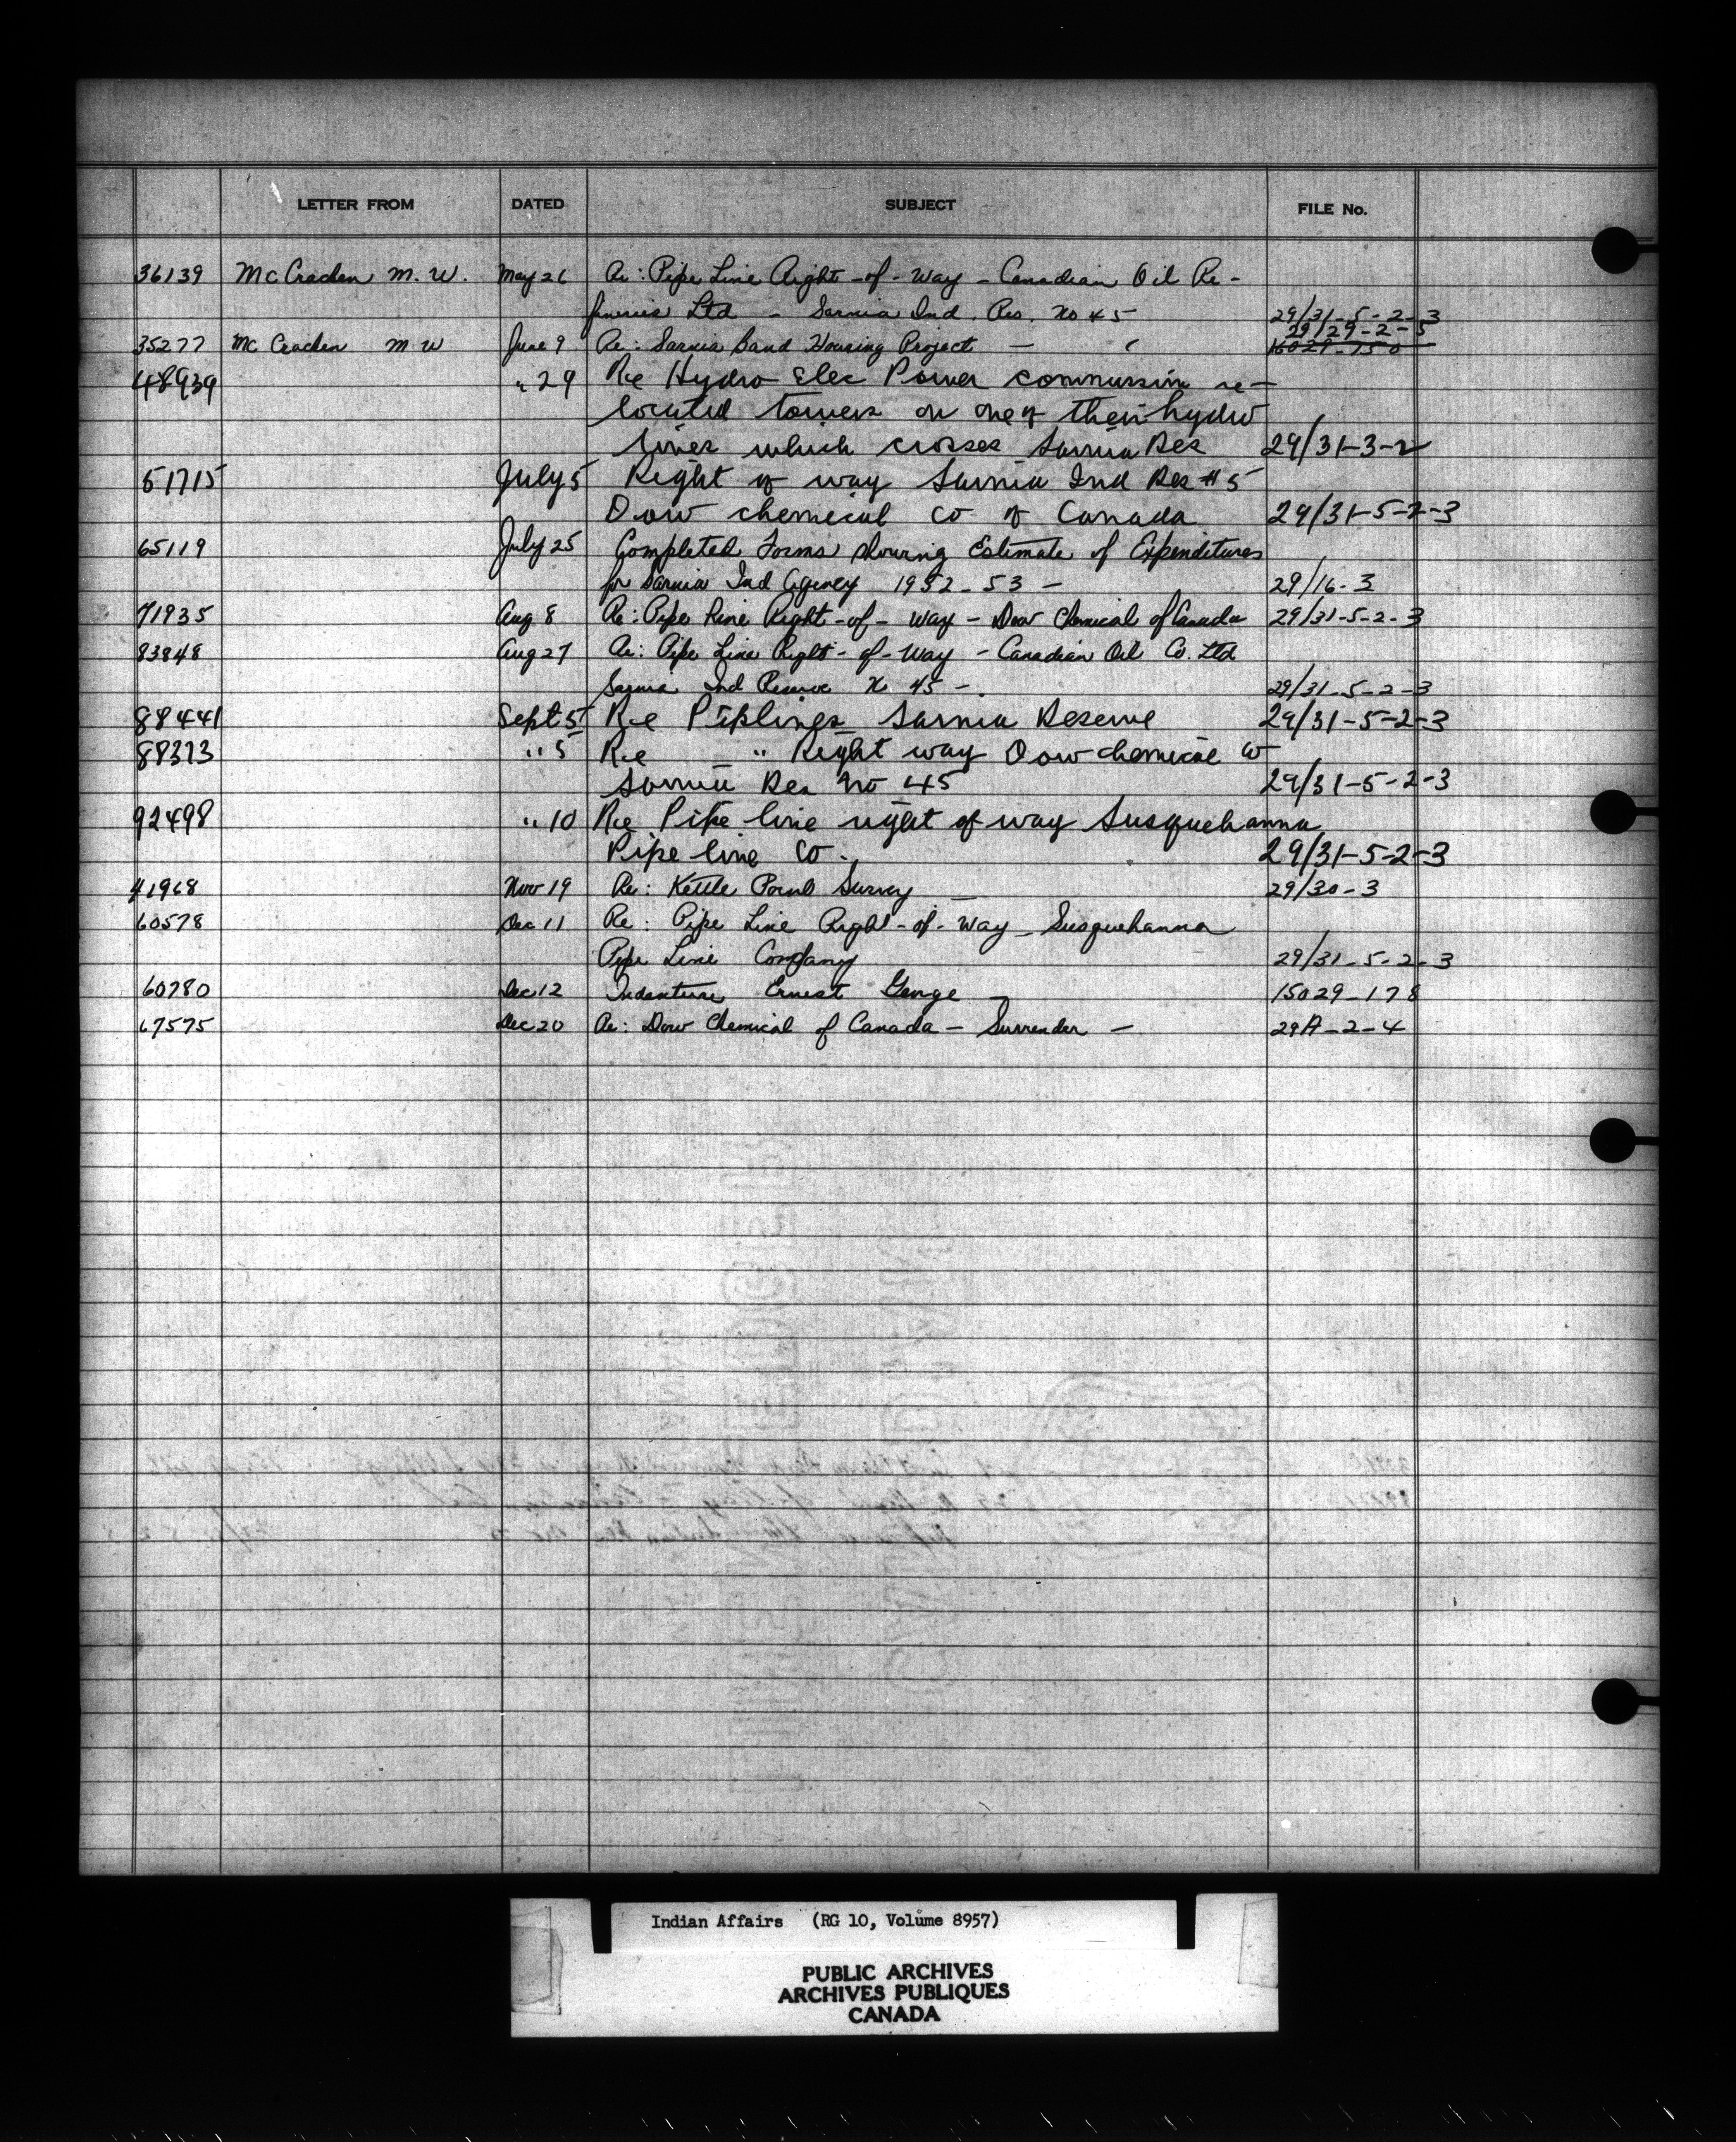 LETTER FROM DATED SUBJECT FILE No.
36139 McCracken M. W. May 26 Re: Pipe Line Right-of-Way - Canadian Oil Re-
fineries Ltd - Sarnia Ind. Res. No 45 29/31-5-2-3
29/29-2-5
35277 McCracken M W June 9 Re: Sarnia Band Housing Project — 16029-150
48939 " 29 Re Hydro Elec Power commission re-
located towers on one of their hydro
lines which crosses Sarnia Res 29/31-3-2
51715 July 5 Right of way Sarnia Ind Res #5
Dow chemical co of Canada 29/31-5-2-3
65119 July 25 Completed Forms showing Estimate of Expenditures
for Sarnia Ind Agency 1952-53 - 29/16-3
71935 Aug 8 Re: Pipe Line Right-of-Way - Dow Chemical of Canada 29/31-5-2-3
83848 Aug 27 Re: Pipe Line Right-of-Way - Canadian Oil Co. Ltd
Sarnia Ind Reserve No 45 - 29/31-5-2-3
88441 Sept 5 Re Piplines Sarnia Reserve 29/31-5-2-3
88373 " 5 Re " Right way Dow chemical co
Sarnia Res No 45 29/31-5-2-3
92498 " 10 Re Pipe line right of way Susquehanna
Pipe line Co. 29/31-5-2-3
41968 Nov 19 Re: Kettle Point Survey 29/30-3
60578 Dec 11 Re: Pipe Line Right-of-Way - Susquehanna
Pipe Line Company 29/31-5-2-3
60780 Dec 12 Indenture Ernest George - 15029-178
67575 Dec 20 Re: Dow Chemical of Canada - Surrender - 29A-2-4
Indian Affairs (RG 10, Volume 8957)
PUBLIC ARCHIVES
ARCHIVES PUBLIQUES
CANADA